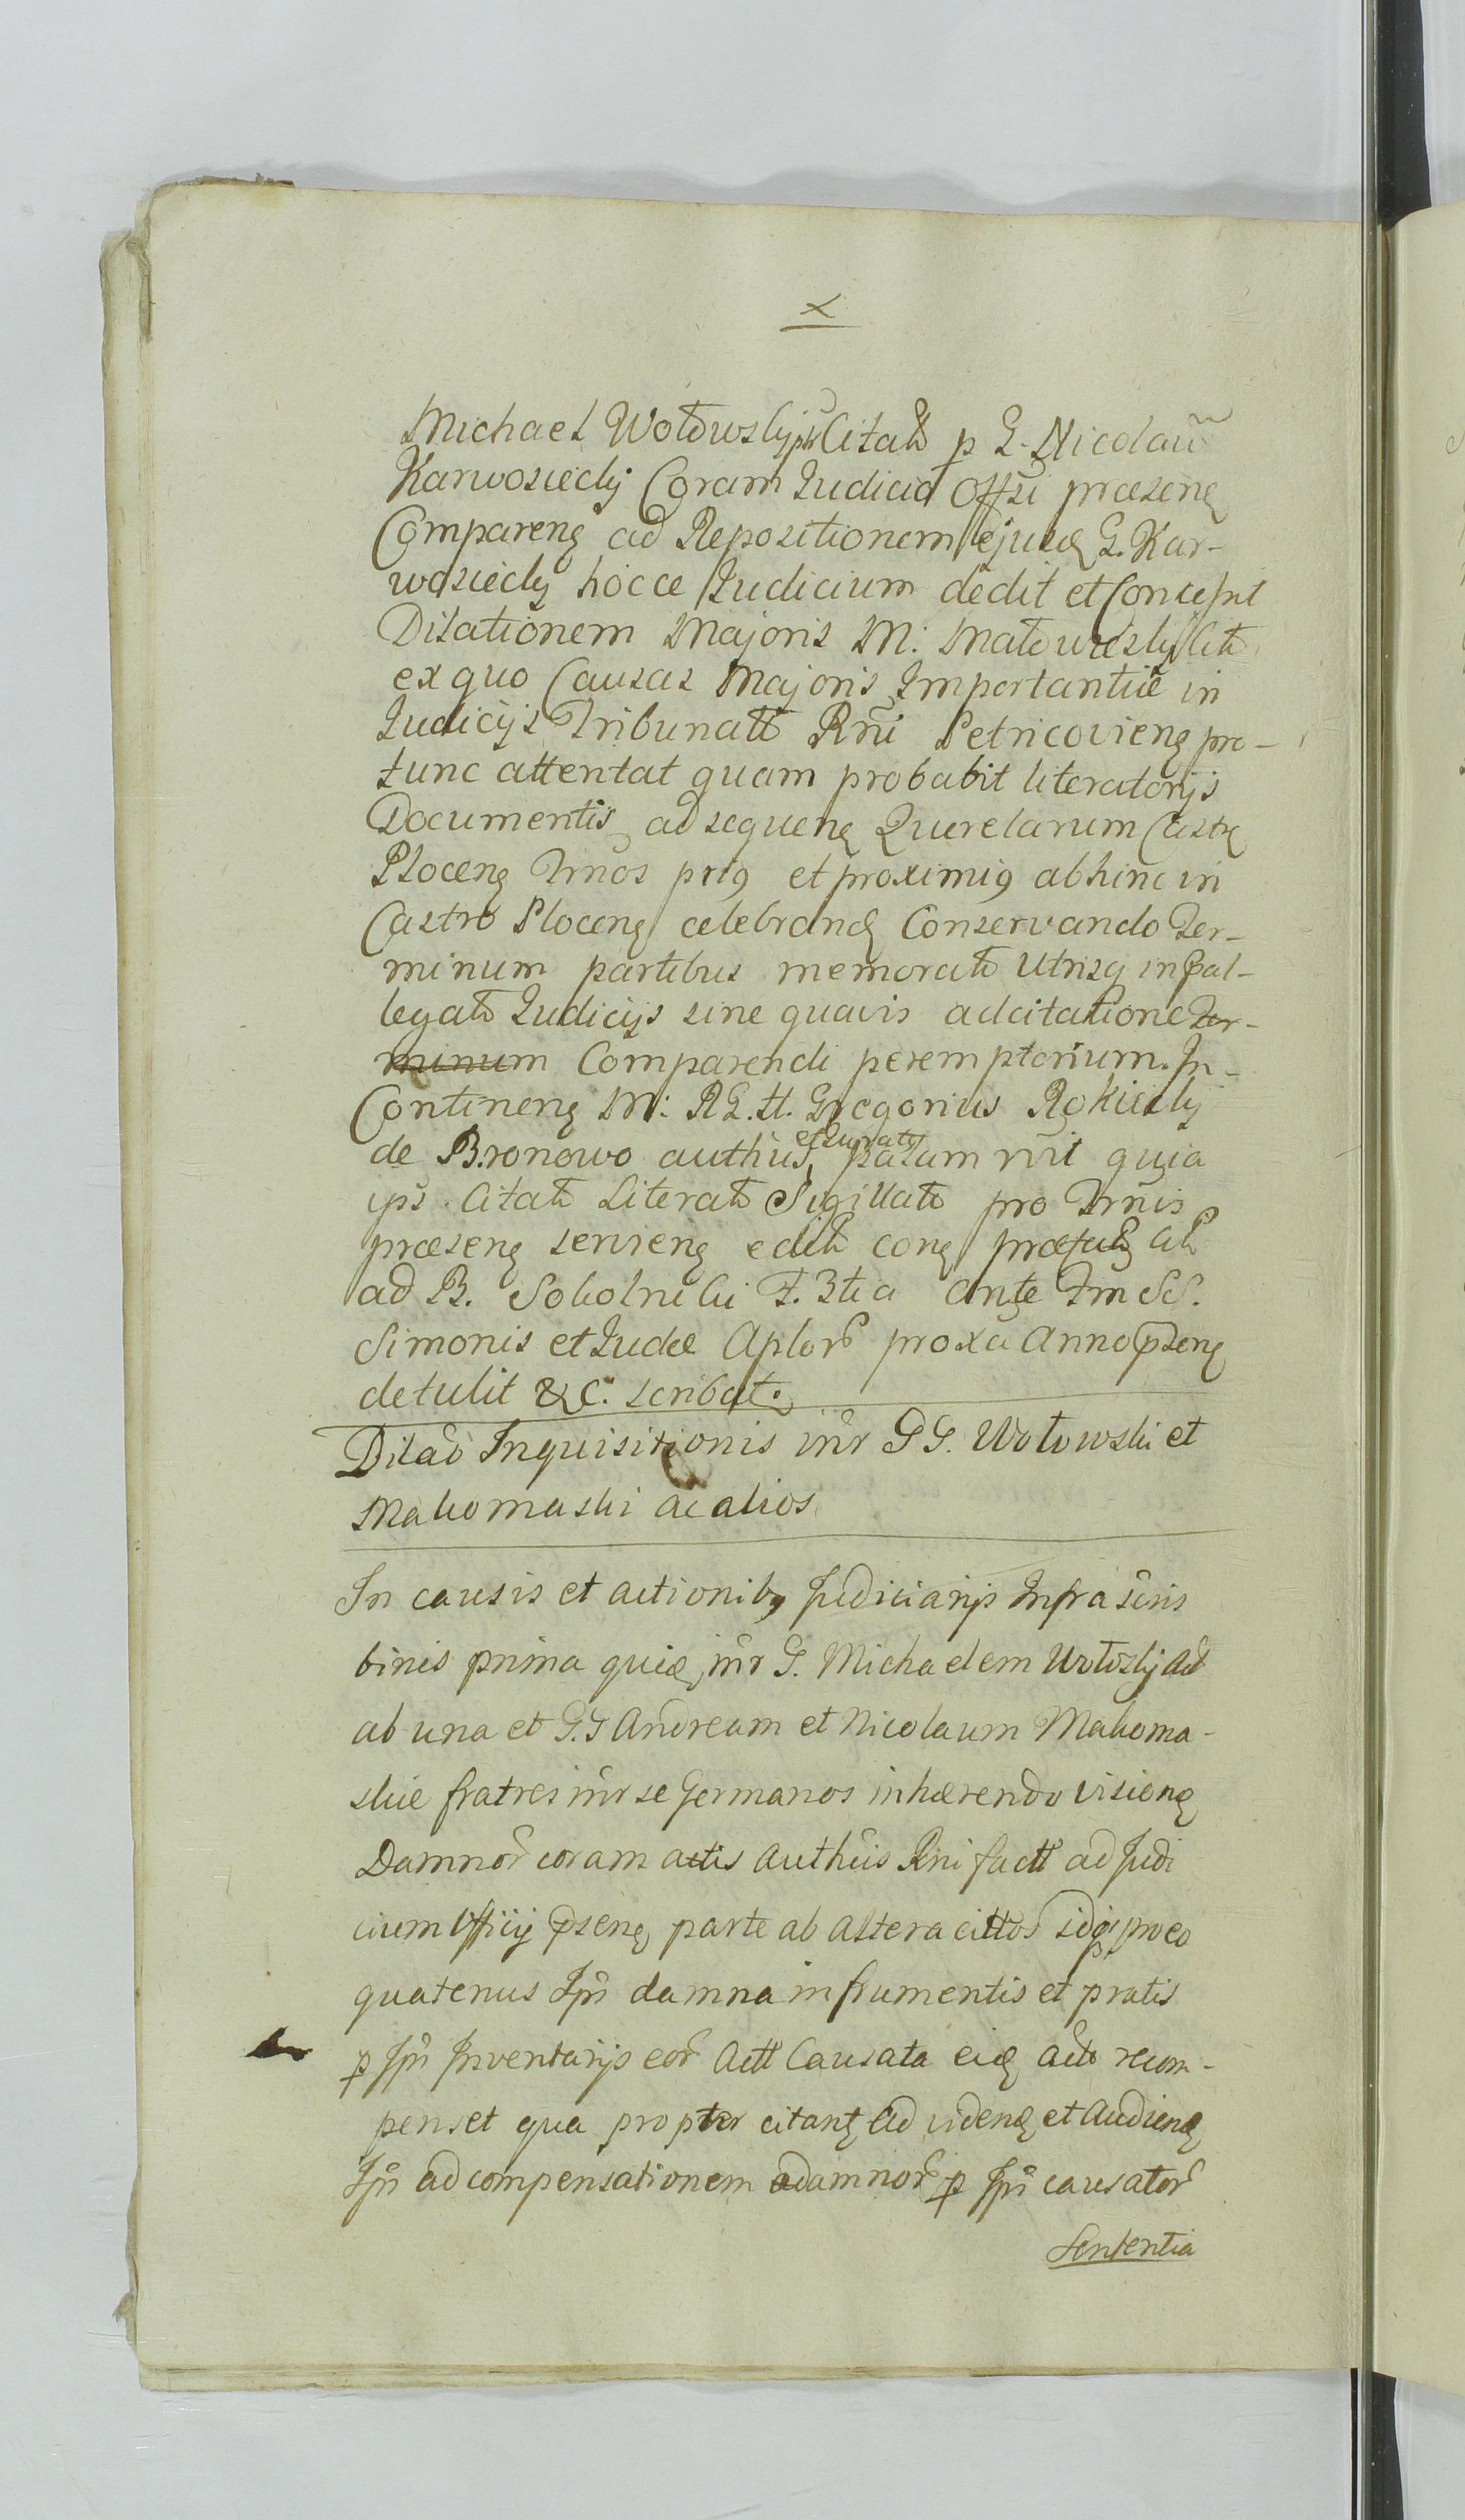 x
Michael Wołowskj Citato p G. Nicolaũ
Karwosieckj Coram Judicio Offii præsenꝫ
Comparenꝫ ad Repositionem ejusdꝫ G. Kar-
wosieckj hocce Judicium dedit et Concessit
Dilationem Majoris M:
ex quo Causas Majoris Importantiæ in
Judicijs Tribunalt Rñi Petricovienꝫ pro-
tunc attentat quam probabit literatorijs
Documentis ad sequenꝫ Querelarum Castrꝫ
Plocenꝫ Tmos et proximiꝯ abhinc in
Castro Plocenꝫ celebrandꝫ Conservando Ter-
minum partibus memorato utrisqꝫ in
legato Judicijs sine quavis adcitatione Ter-
minum Comparendi peremptorium. In-
Continenꝫ M: R G. H. Gregorius Rokickj
de Bronowo authũs et Juratꝯ palam rñit quia
ips. Citato Literato Sigillato pro Tmis
præsenꝫ servienꝫ edito conꝫ præfatꝫ Cito
ad B. Sokolniki F. 3tia Ante Fm SS.
Simonis et Judæ Aplorꝫ proxa Anno pꝫsenꝫ
detulit &c. scribatꝫ
Dilaõ Inquisitionis inr GG. Wołowski et
Makomaski ac alios
In causis et actionibꝯ Judiciarijs Infra scris
binis prima quidꝫ inr G. Michaelem Wołoskj Act
ab una et G.G Andream et Nicolaum Makoma-
skie fratres inr se Germanos inhærendo visionꝫ
Damnor coram actis authcis Rni factt ad Judi
cium Officij pꝫsenꝫ parte ab altera cittos pro eo
quatenus Ipsi damna in frumentis et pratis
p Ipsi Inventarijs eor Actt Causata eidꝫ acto recom-
penset qua propter citantꝫ ad videndꝫ et audiendꝫ
Ipsi ad compensationem damnor p Ipsi causator
Sententia